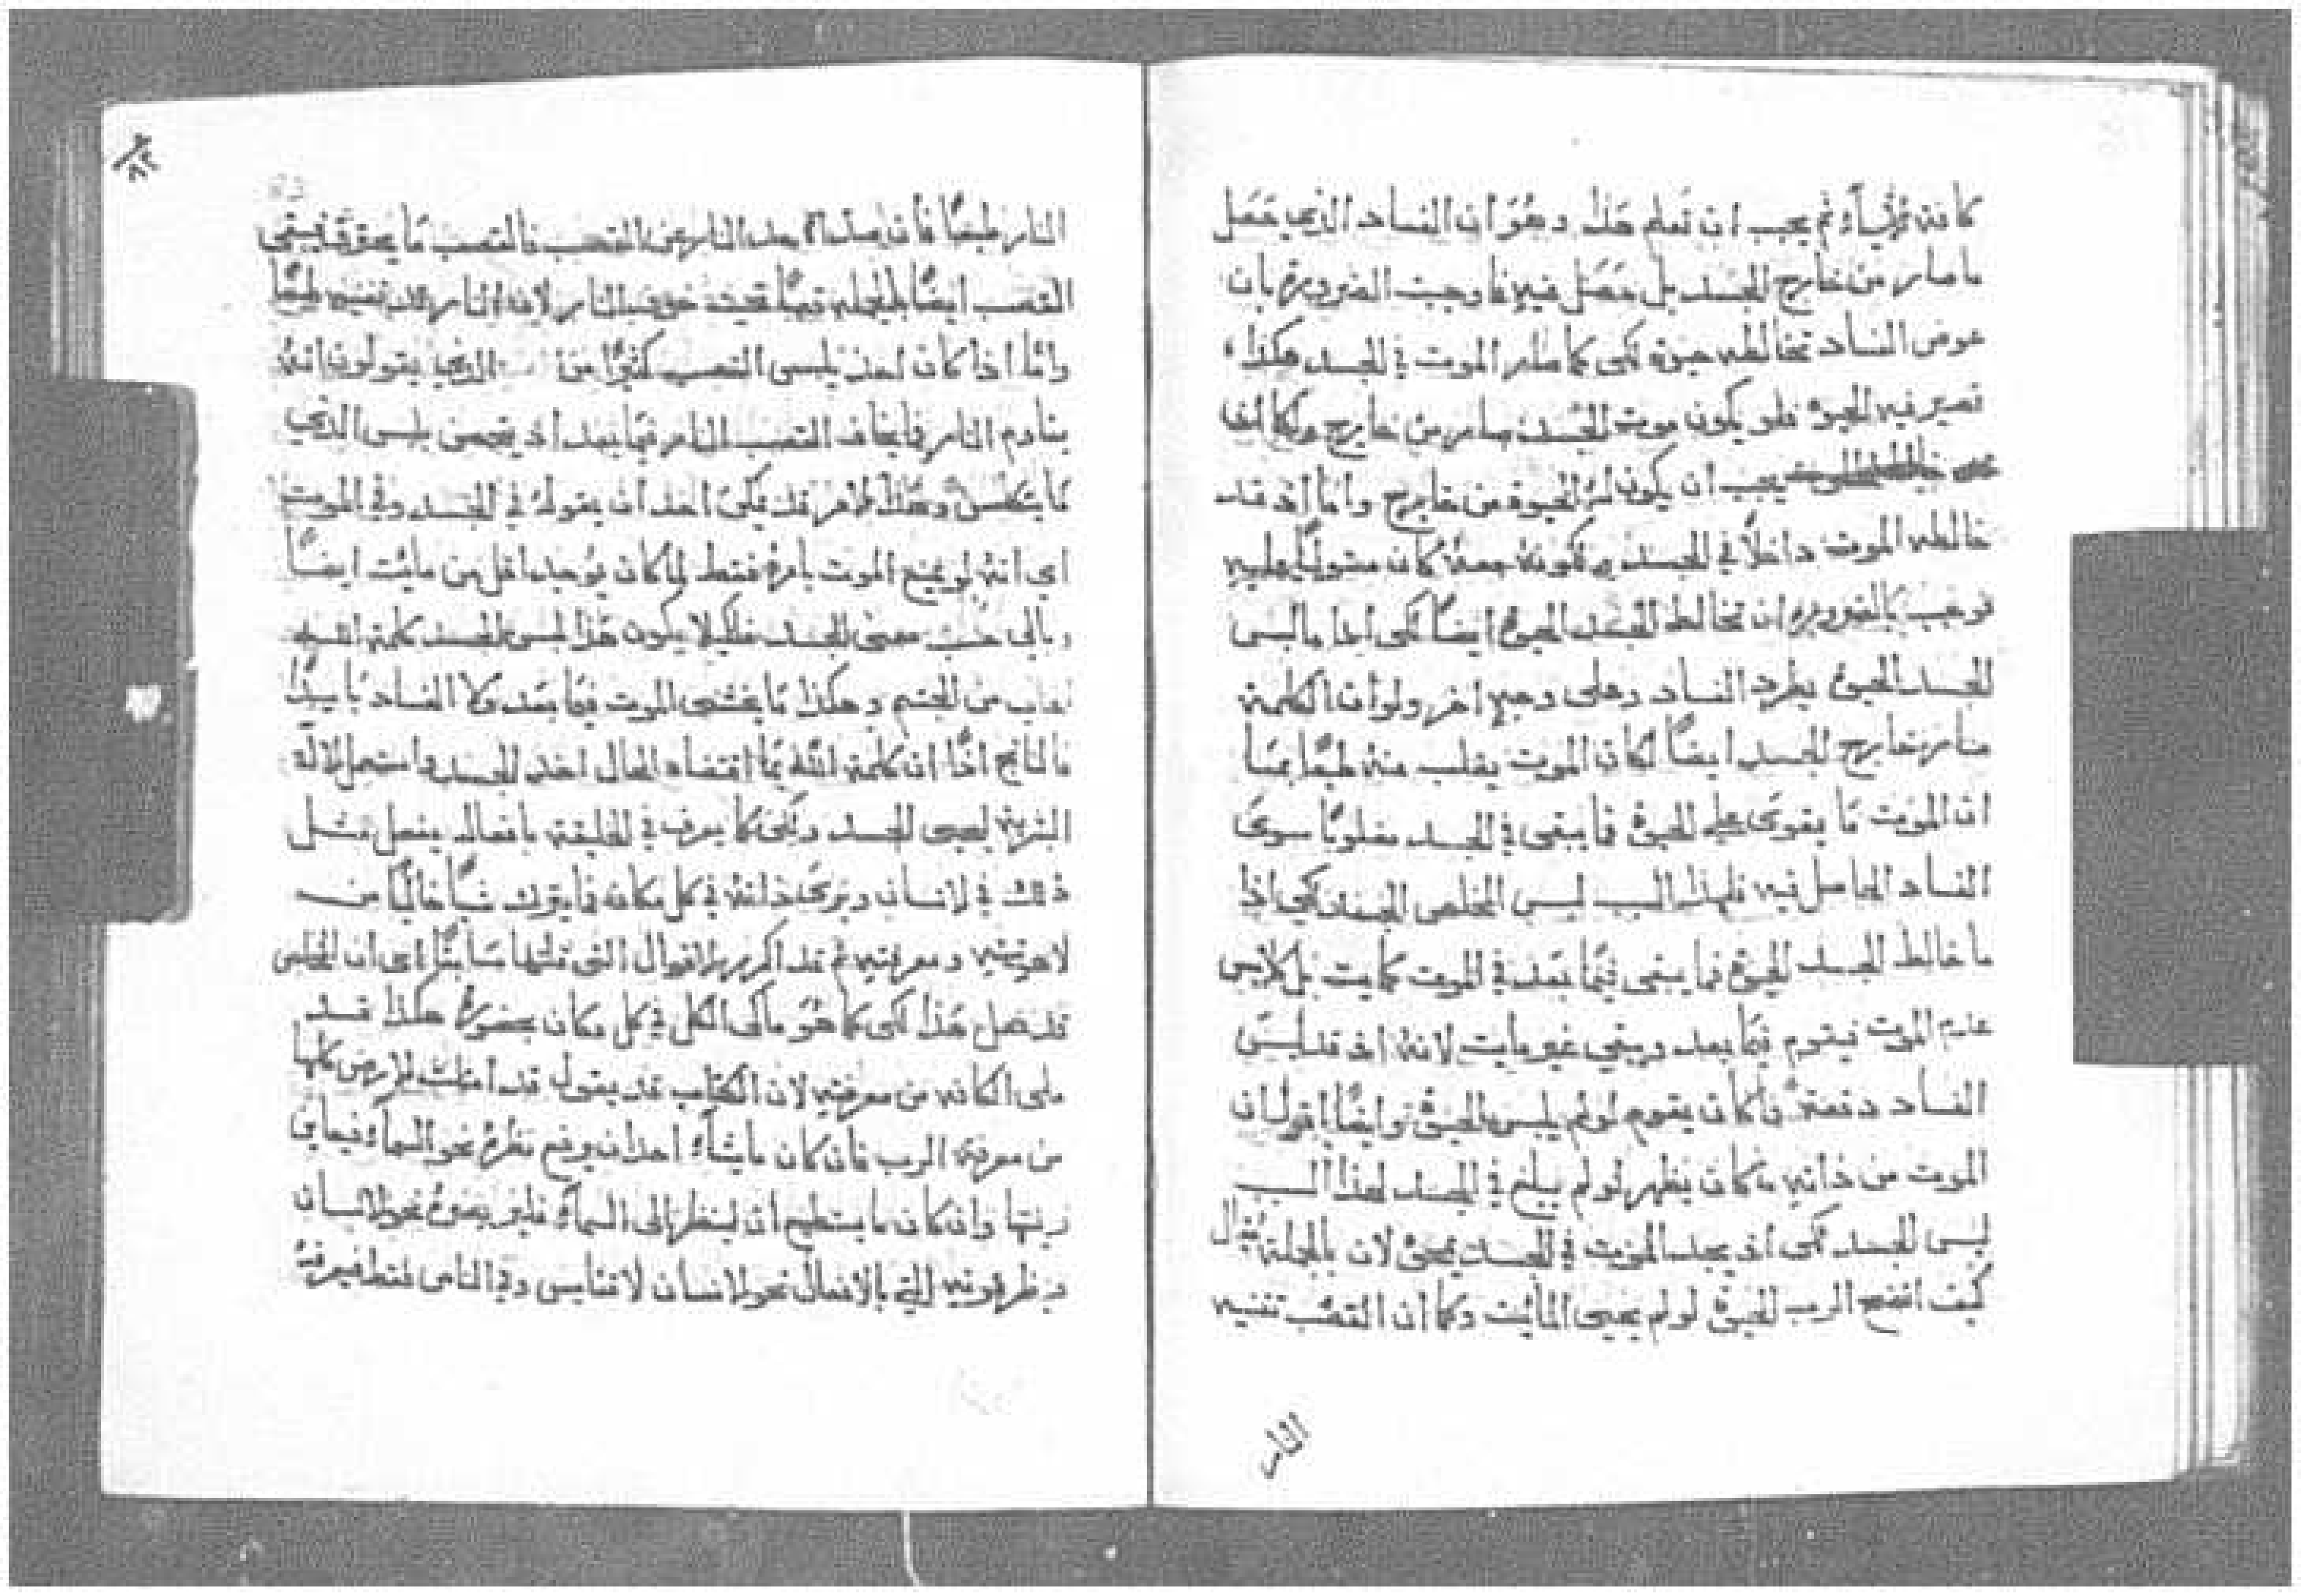 كانة ثم يجب ان تعلم هذا وهو ان الفساد الذي حصل
ما صار من خارج الجسد بل حصل فيه فاوجبت الضرورة بان
عوض الفساد تخالطه حيوة لكي كما صار الموت في الجسد هكذا
تصير فيه الحيوة فلو يكون موت الجسد صار من خارج لكان
يجب ان يكون له الحيوة من خارج واما اذ قد
خالطه الموت داخلاً في الجسد وكونه معه كان مستولياً عليه
فوجب بالضرورة ان تخالط الجسد الحيوة ايضاً لكي اذا ما لبس
الجسد الحيوة يطرد الفساد وعلى وجه اخر ولو ان الكلمة
صار خارج الجسد ايضاً لكان الموت يغلب منه طبيعياً بما
ان الموت ما يقوى على الحيوة فا يبقى في الجسد مغلوباً سوى
الفساد الحاصل فيه فلهذا السبب لبس المخلص الجسد لكي اذا
ما خالط الجسد الحيوة فما يبقى فيما بعد في الموت كمايت بل كلابس
عدم الموت فيقوم فيما بعد ويبقي غير مايت لانه اذ قد لبس
الفساد دفعة ما كان يقوم لو لم يلبس الحيوة وايضاً اقول ان
الموت من ذاته ما كان يظهر لو لم يبلغ في الجسد لهذا السبب
لبس الجسد لكي اذ يجد الموت في الجسد يمحى لان بالجملة يقال
كيف اتضح الرب الحيوة لو لم يحيى المايت وكما ان القصب تفنيه
النار
النار طبيعياً فان النار عن القصب فالقصب ما يحترق فيبقى
القصب ايضاً بالجملة قصباً تحت خوف النار لان النار قد تفنيه طبيعياً
واما اذا كان احد يلبس القصب كثيراً من الذي يقولون انه
يقاوم النار فا يخاف القصب النار فيما بعد اذ يحصن بلبس الذي
وهذا الامر قد يمكن احد ان يقوله في الجسد وفي الموت
اي انه لو يمنع الموت بامره فقط لما كان يوجد اقل من مائت ايضاً
وبالي حسب معنى الجسد فلكيلا يكون هذا لبس الجسد كلمة الله
من الجسم وهكذا ما يخشى الموت فيما بعد ولا الفساد
فالناتج اذاً ان كلمة الله بما اقتضاه الحال اخذ الجسد واستعمل الالة
البشرية ليحيى الجسد ولكي كما يعرف في الخليقة بافعاله يفعل مثل
ذلك في الانسان ويري ذاته في كل مكان فما يترك شياً خالياً من
لاهوته ومعرفته ثم قد اكرر الاقوال التي قلتها سابقاً اي ان المخلص
قد فعل هذا لكي كما هو مالى الكل في كل مكان بحضوره هكذا قد
ملى الكافة من معرفته لان الكتاب قد يقول قد امتلت الارض كلها
من معرفة الرب فان كان يشاء احد ان يرفع نظره نحو السماء فيعاين
زينتها وان كان ما يستطيع ان ينظر الى السماء نحو الانسان
قوته التي بالافعال نحو الانسان لا تقايس وفي الناس فقط فيعرفه